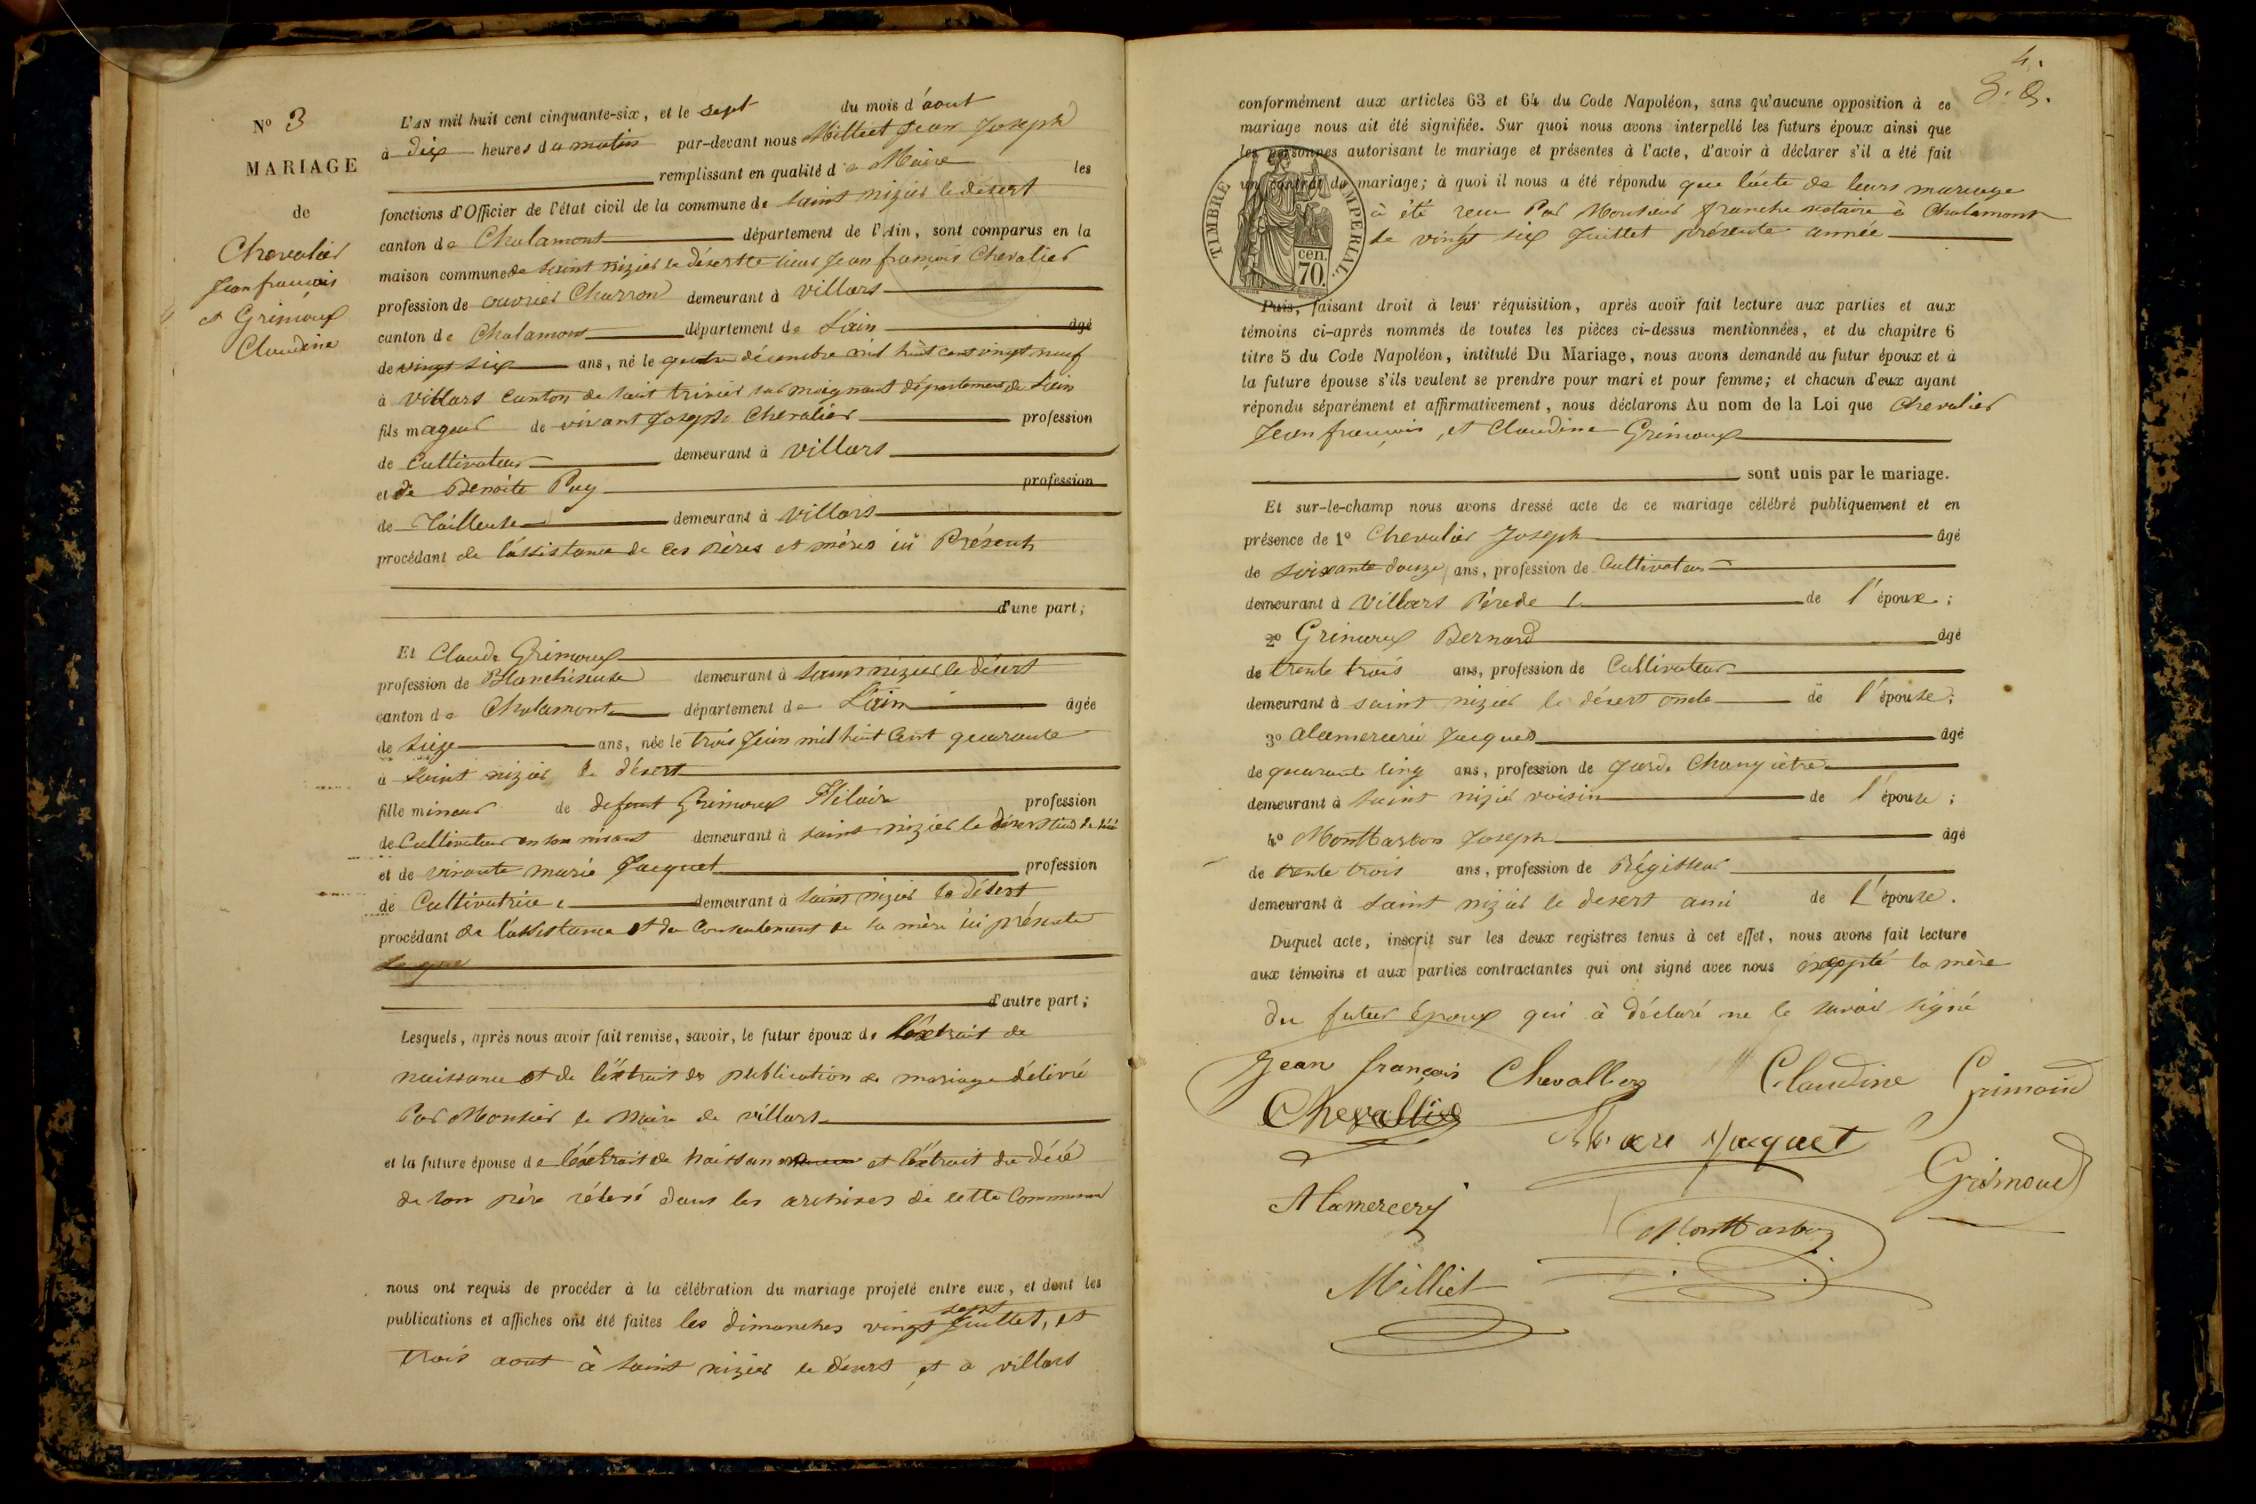 N° 3
MARIAGE
de
Chevalier
Jean françois
et Grimoux
Claudine
L'AN mil huit cent cinquante-six, et le sept du mois d'aout
à dix heures du matin par-devant nous Milliet Jean Joseph
remplissant en qualité de Maire les
fonctions d'Officier de l'état civil de la commune de saint nizier le désert
canton de Chalamont département de l'Ain, sont comparus en la
maison commune de saint nizier le désert le sieur Jean françois Chevalier
profession de ouvrier Charron demeurant à villars
canton de Chalamont département de L'ain âgé
de vingt six ans, né le quatre décembre mil huit cent vingt neuf
à villars canton de saint trivier sur moignant département de L'ain
fils mageur de vivant Joseph Chevalier profession
de Cultivateur demeurant à villars
et de Benoite Puy profession
de Tailleuse demeurant à villars
procédant de l'assistance de ces pères et mères ici Présents
d'une part;
Et Claude Grimoux
profession de Blanchiseuse demeurant à saint nizier le désert
canton de Chalamont département de L'ain âgée
de sieze ans, née le trois Juin mil huit Cent quarante
à saint nizier le désert
fille mineur de defunt Grimoux Hilaire profession
de Cultivateur en son vivant demeurant à saint nizier le désert
et de vivante marie Jacquet profession
de Cultivatrice demeurant à saint nizier le désert
procédant de l'assistance et du consentement de sa mère ici présente
d'autre part;
Lesquels, après nous avoir fait remise, savoir, le futur époux de l'éxtrait de
naissance et de l'éxtrait de publication de mariage délivré
Par Monsier le Maire de villars
et la future épouse de l'éxtrait de naissance et l'éxtrait du décé
de son père rélevé dans les archives de cette Commune
nous ont requis de procéder à la célébration du mariage projeté entre eux, et dont les
publications et affiches ont été faites les dimanches vingt sept Juillet, et
trois aout à saint nizier le désert et a villars
4.
conformément aux articles 63 et 64 du Code Napoléon, sans qu'aucune opposition à ce
mariage nous ait été signifiée. Sur quoi nous avons interpellé les futurs époux ainsi que
les personnes autorisant le mariage et présentes à l'acte, d'avoir à déclarer s'il a été fait
un contrat de mariage; à quoi il nous a été répondu que l'acte de leurs mariage
à été recu Par Monsieur franche notaire à Chalamont
le vingt six Juillet présente année
TIMBRE IMPÉRIAL.
70 cen.
Puis, faisant droit à leur réquisition, après avoir fait lecture aux parties et aux
témoins ci-après nommés de toutes les pièces ci-dessus mentionnées, et du chapitre 6
titre 5 du Code Napoléon, intitulé Du Mariage, nous avons demandé au futur époux et à
la future épouse s'ils veulent se prendre pour mari et pour femme; et chacun d'eux ayant
répondu séparément et affirmativement, nous déclarons Au nom de la Loi que Chevalier
Jean françois, et Claudine Grimoux
sont unis par le mariage.
Et sur-le-champ nous avons dressé acte de ce mariage célébré publiquement et en
présence de 1° Chevalier Joseph âgé
de soixante douze ans, profession de Cultivateur
demeurant à Villars Père de l. de l'époux;
2° Grimoux Bernard âgé
de trente trois ans, profession de Cultivateur
demeurant à saint nizier le désert oncle de l'épouse;
3° alamercerie Jacques âgé
de quarante cinq ans, profession de garde Champêtre
demeurant à saint nizié voisin de l'épouse;
4° Monttarbon Joseph âgé
de trente trois ans, profession de Régisseur
demeurant à saint nizier le desert ami de L'épouse.
Duquel acte, inscrit sur les deux registres tenus à cet effet, nous avons fait lecture
aux témoins et aux parties contractantes qui ont signé avec nous éxeppté la mère
du futur époux qui à déclaré ne le savoir signé
Jean françois Chevallier Claudine Grimoud
Chevallier
Marie Jacquet
Grimoud
Alamercery
Monttarbon
Milliet